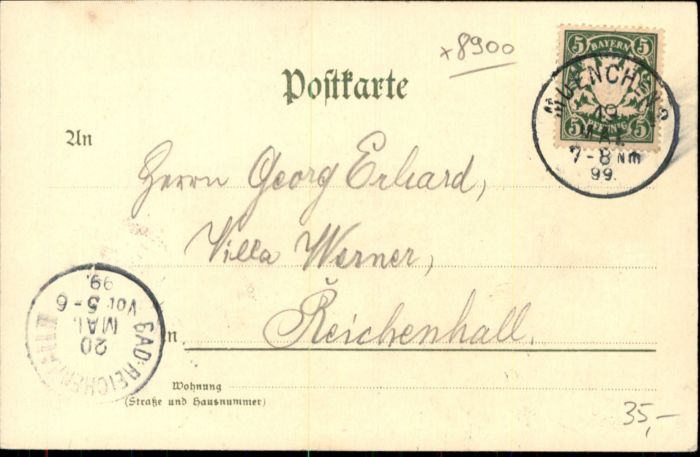 ×8900
5 BAYERN 5
5 PFENNIG 5
MUENCHEN
19
MAI
7-8 Nm
99.
Postkarte
An
Herrn Georg Erhard,
Villa Werner,
in Reichenhall.
BAD-REICHENHALL
20
MAI.
Vor 5-6
99.
Wohnung
(Straße und Hausnummer)
35,-